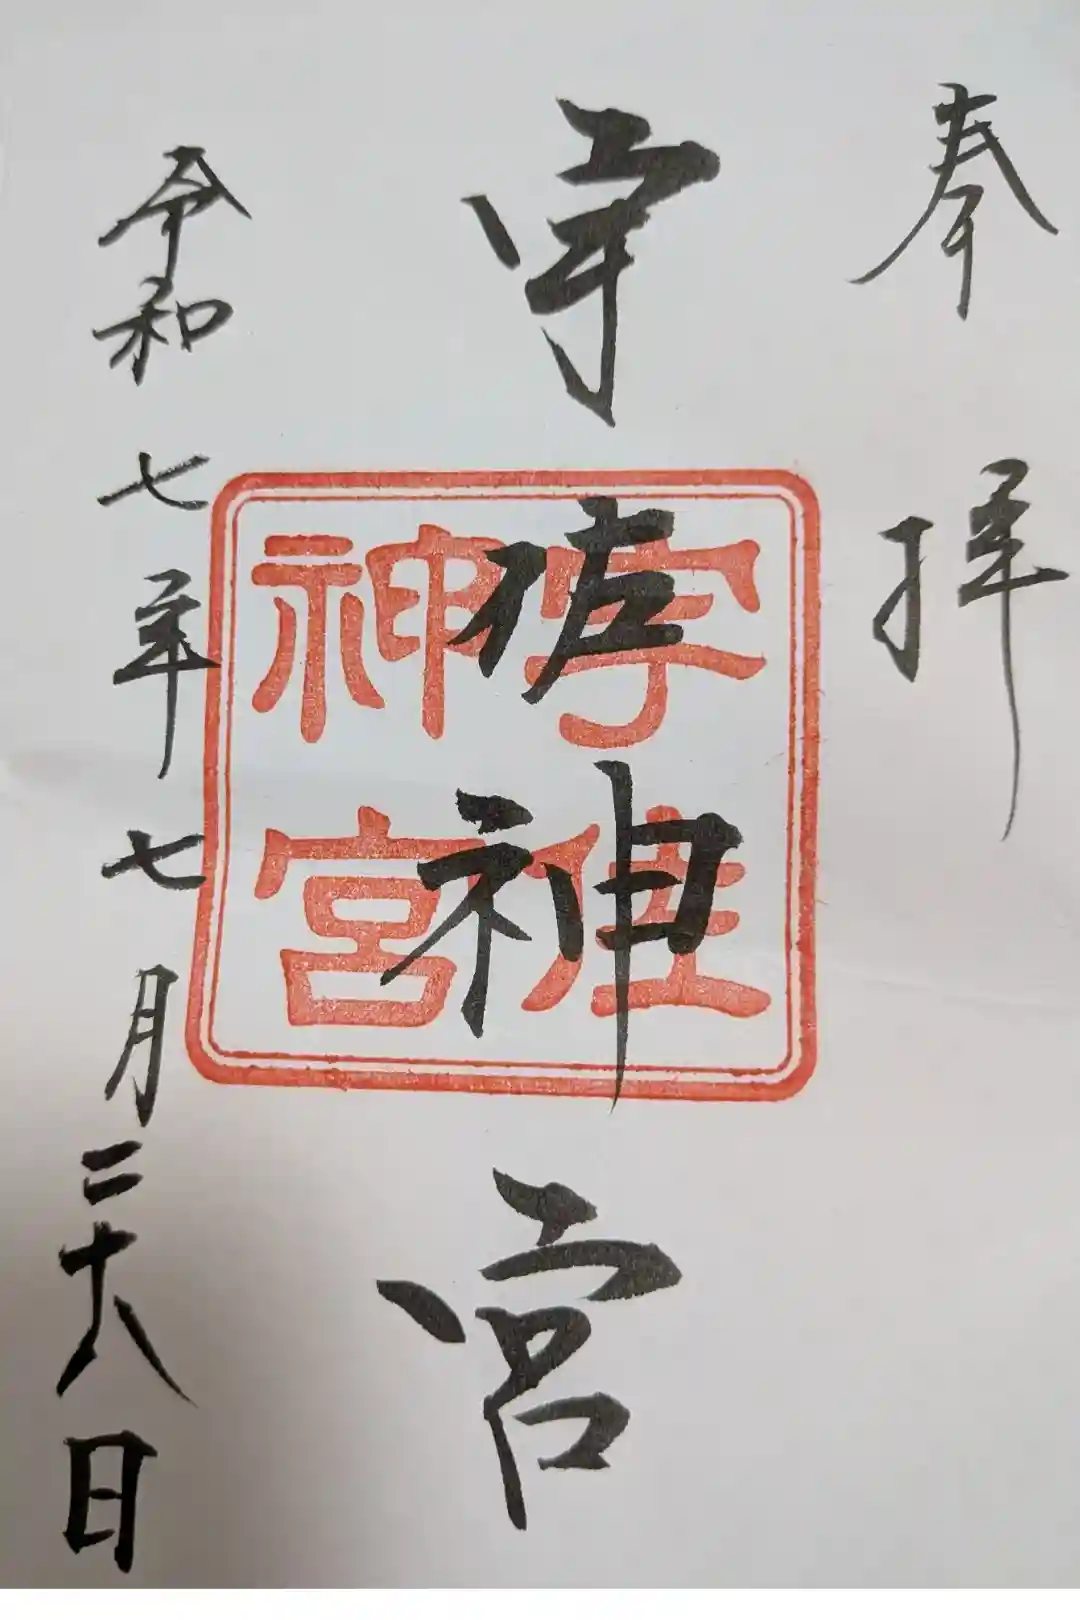 奉拝
宇佐神宮
令和七年七月二十八日
宇佐神宮